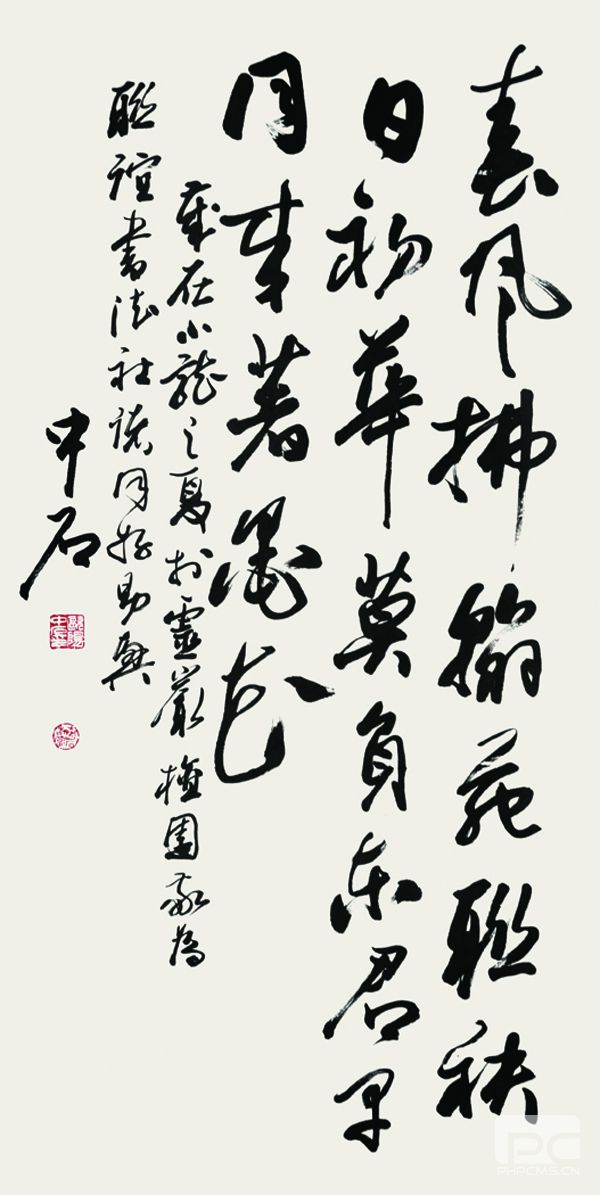 春風拂翰苑聯袂
日初華莫負東君早
同來著墨花
歲在小龍之夏於靈巖園敬為
聯誼書法社諸同好興
中石
PC
PHPCMS.CN